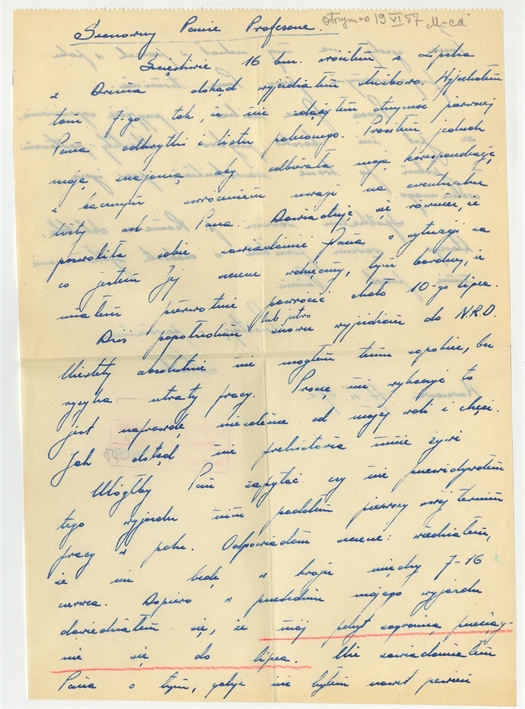 otrzym-o 19 VI 57 M-ca
Szanowny Panie Profesorze.
Szczęśliwie 16 bm. wróciłem z Lipska
i Drezna dokąd wyjechałem służbowo. Wyjechałem
tam 7-go tak, że nie zdążyłem otrzymać pierwszej
Pana odkrytki i listu poleconego. Prosiłem jednak
moją znajomą aby odbierała moją korespondencję
z baczným zwróceniem uwagi na ewentualne
listy od Pana. Dowiaduję się również, że
pozwoliła sobie zawiadomić Pana o sytuacji za
co jestem Jej szczerze wdzięczny, tym bardziej, że
miałem pierwotnie powrócić około 10-go lipca.
Dziś popołudniu lub jutro znowu wyjeżdżam do N.R.D.
Niestety absolutnie nie mogłem temu zapobiec, bez
ryzyka utraty pracy. Proszę mi wybaczyć to
jest naprawdę niezależne od mojej woli i chęci.
Jak dotąd nie prehistoria mnie żywi
Mógłby Pan zapytać czy nie przewidywałem
tego wyjazdu nim podałem pierwszy swój termin
pracy w polu. Odpowiadam szczerze: wiedziałem,
że nie będę w kraju między 7-16
czerwca. Dopiero w przededniu mojego wyjazdu
dowiedziałem się, że mój pobyt zagranicą przeciąg-
nie się do lipca. Nie zawiadomiłem
Pana o tym, gdyż nie byłem nawet pewien